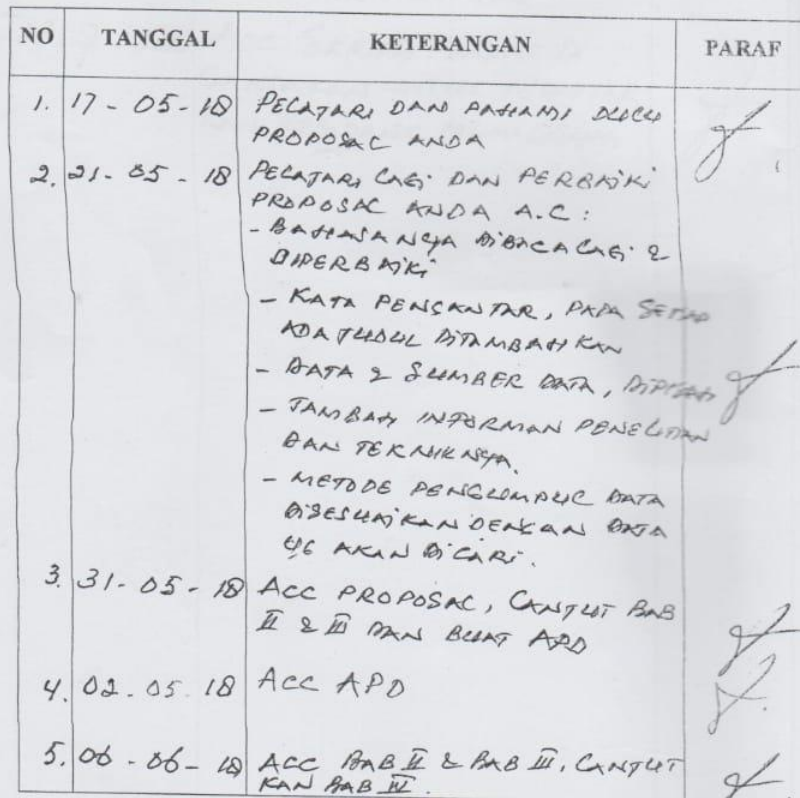 NO TANGGAL KETERANGAN PARAF
1. 17 - 05 - 18 PELAJARI DAN PAHAMI DULU
PROPOSAL ANDA
2. 21 - 05 - 18 PELAJARI LAGI DAN PERBAIKI
PROPOSAL ANDA A.L :
- BAHASANYA DIBACA LAGI &
DIPERBAIKI
- KATA PENGANTAR, PADA SETIAP
ADA JUDUL DITAMBAHKAN
- DATA & SUMBER DATA, DIPISAH
- TAMBAH INFORMAN PENELITIAN
DAN TEKNIKNYA.
- METODE PENGUMPUL DATA
DISESUAIKAN DENGAN DATA
YG AKAN DICARI.
3. 31 - 05 - 18 ACC PROPOSAL, LANJUT BAB
II & III DAN BUAT APD
4. 02 - 05 - 18 ACC APD
5. 06 - 06 - 18 ACC BAB II & BAB III, LANJUT
KAN BAB IV.